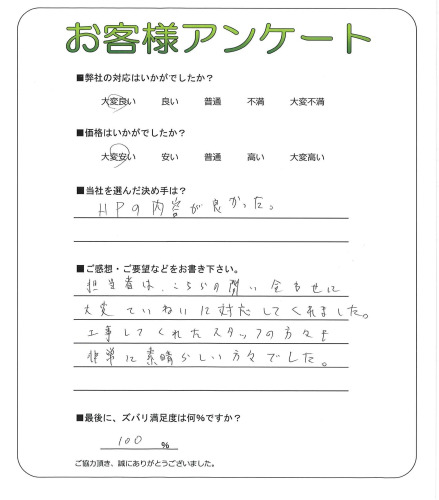 お客様アンケート
■弊社の対応はいかがでしたか？
大変良い 良い 普通 不満 大変不満
■価格はいかがでしたか？
大変安い 安い 普通 高い 大変高い
■当社を選んだ決め手は？
HPの内容が良かった。
■ご感想・ご要望などをお書き下さい。
担当者は、こちらの問い合わせに
大変ていねいに対応してくれました。
工事してくれたスタッフの方々も
非常に素晴らしい方々でした。
■最後に、ズバリ満足度は何%ですか？
100 %
ご協力頂き、誠にありがとうございました。